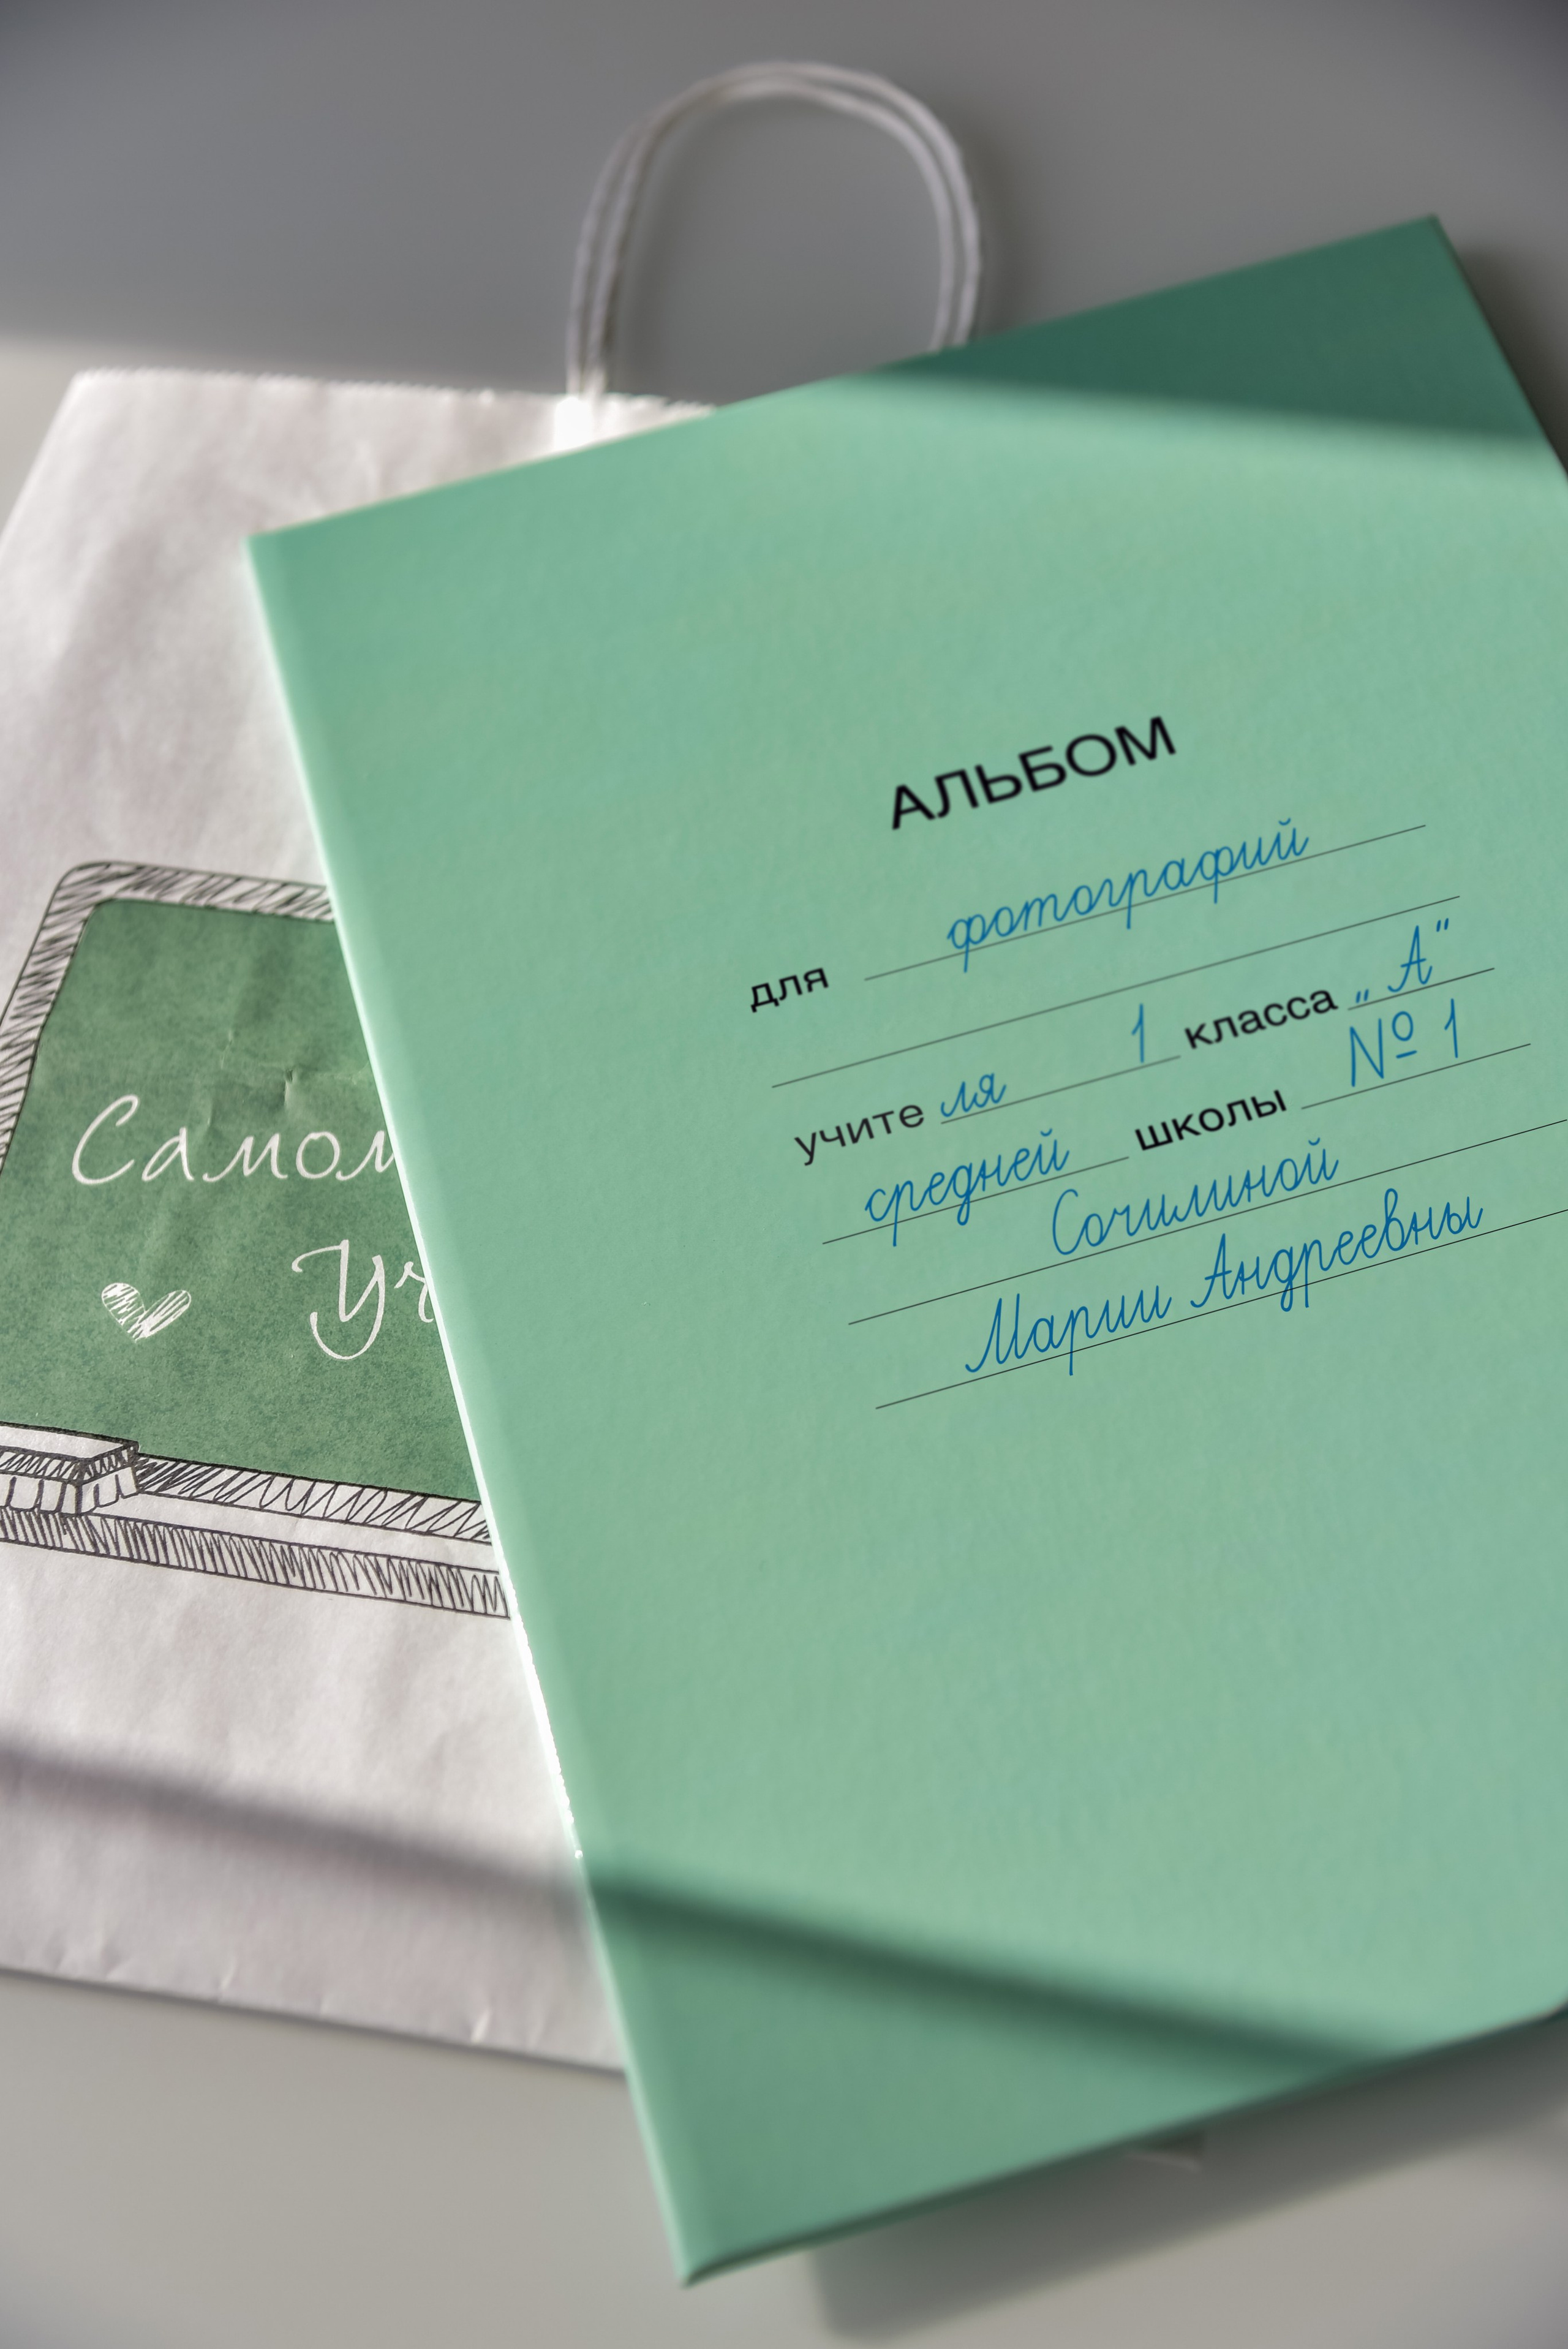 АЛЬБОМ
для фотографий
учителя 1 класса „А"
средней школы № 1
Сочилиной
Марии Андреевны